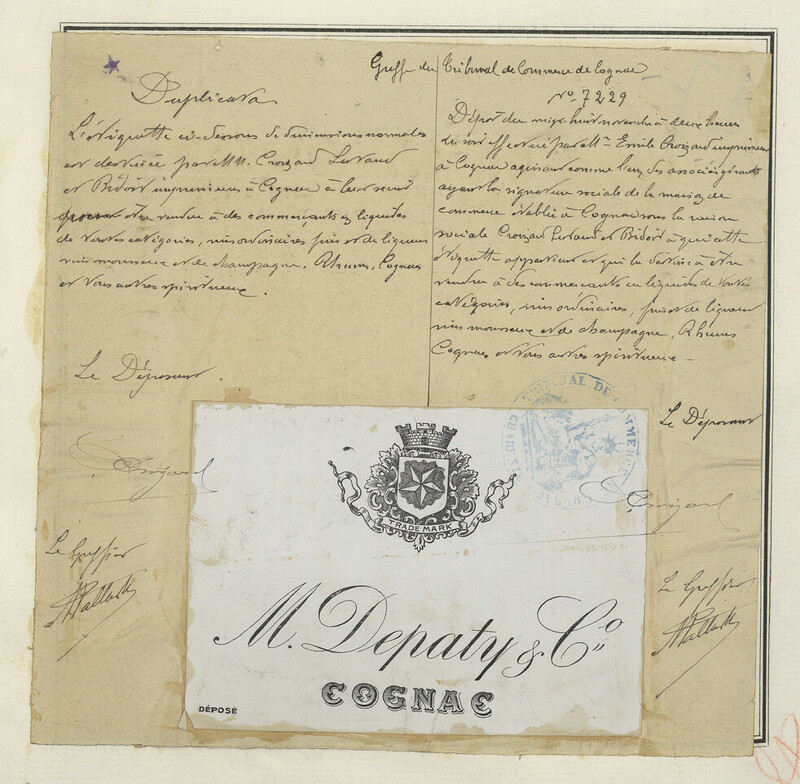 Greffe du Tribunal de Commerce de Cognac
Duplicata
L'étiquette ci-dessous de dimensions normales
est destinée par MM. Croizard Leraud
et Bidoit imprimeurs à Cognac à leur seul
être vendue à des commerçants en liquides
de toutes catégories, vins ordinaires fins et de liqueurs
vins mousseux et de champagne, Rhums, Cognacs
et tous autres spiritueux.
Le Déposant
Croizard
Le Greffier
No. 7229
Dépôt du vingt huit novembre à deux heures
du soir effectué par M. Emile Croizard imprimeur
à Cognac agissant comme l'un des associés gérants
ayant la signature sociale de la maison de
commerce établie à Cognac sous la raison
sociale Croizard Leraud et Bidoit à qui cette
étiquette appartient et qui la destine à être
vendue à des commerçants en liquides de toutes
catégories, vins ordinaires, fins et de liqueur
vins mousseux et de champagne, Rhums
Cognacs et tous autres spiritueux
Le Déposant
Croizard
Le Greffier
TRIBUNAL DE COMMERCE
TRADE MARK
M. Depaty & Co
COGNAC
DÉPOSÉ